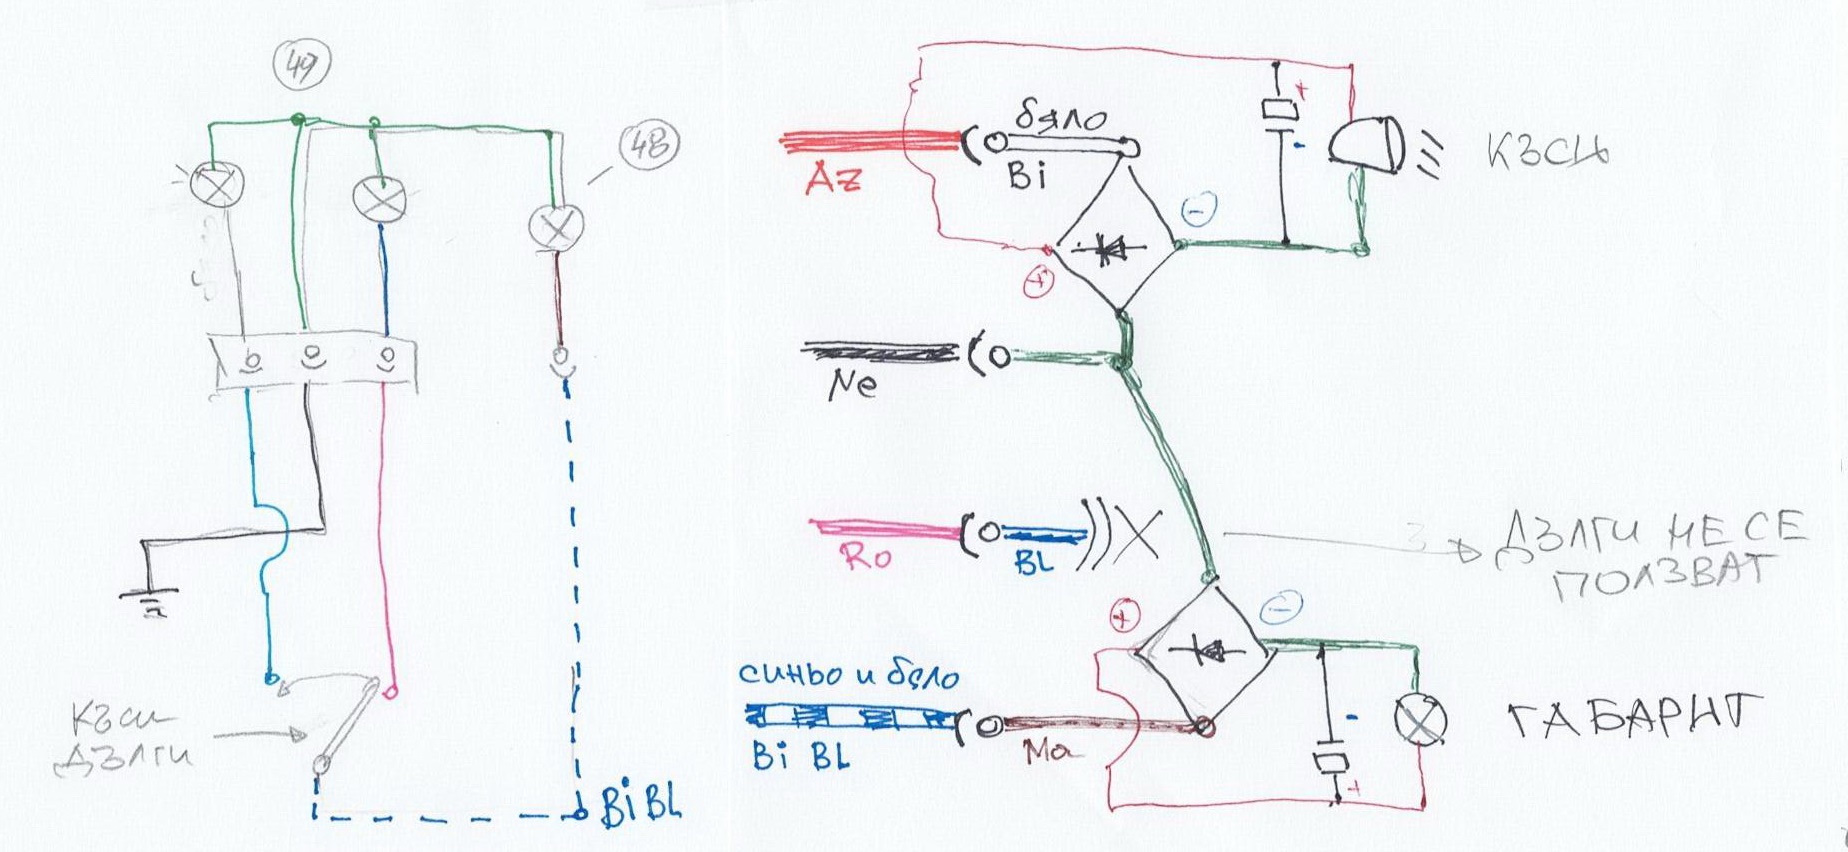 49
48
КЪСИ
ДЪЛГИ
BiBL
бяло
Az
Bi
КЪСИ
+
-
-
+
Ne
Ro
BL
ДЪЛГИ НЕ СЕ
ПОЛЗВАТ
+
-
синьо и бяло
Bi BL
Ma
-
+
ГАБАРИТ